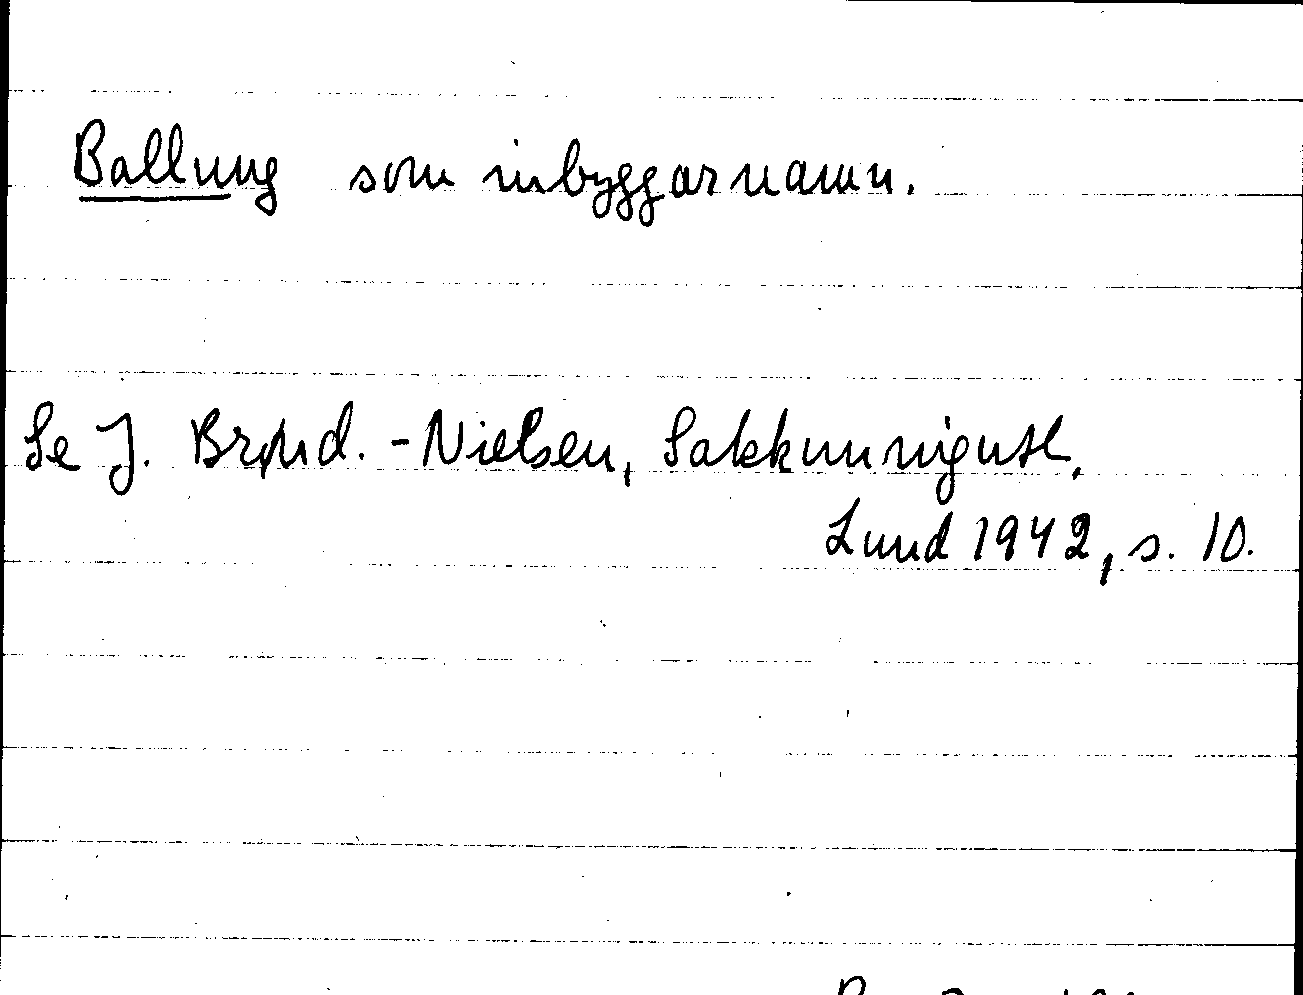 Ballung som inbyggarnamn.
Se J. Brønd.-Nielsen, Sakkunnigutl.
Lund 1942, s. 10.